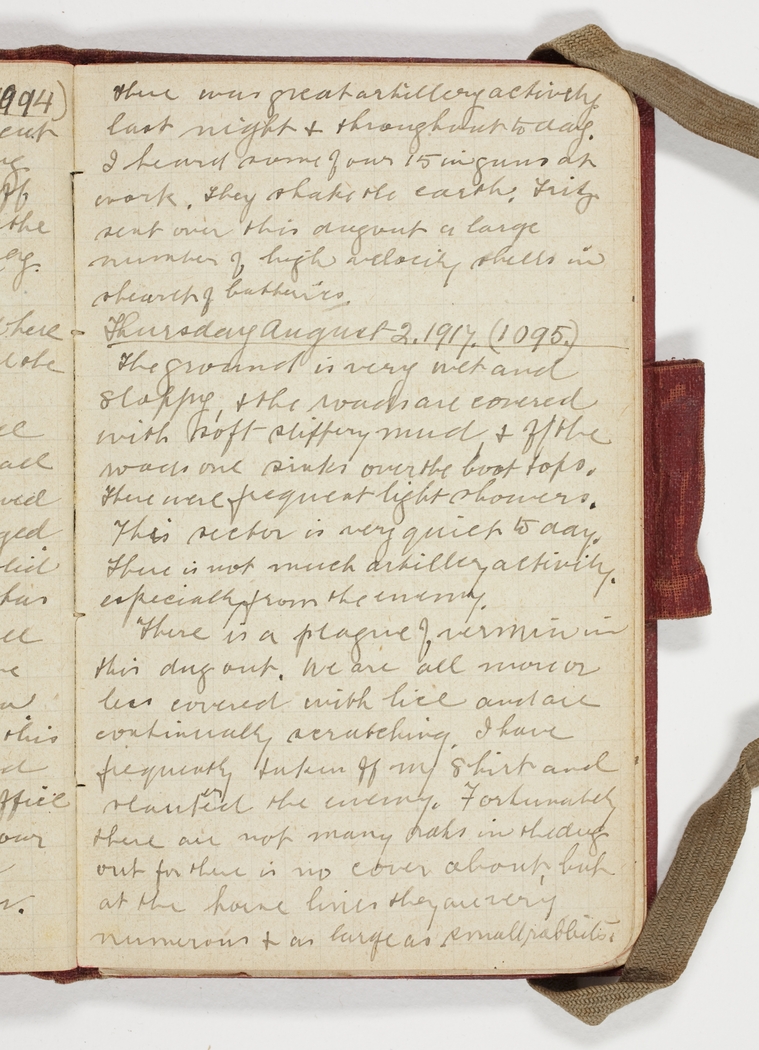 994)
there was great artillery activity
last night & throughout to day.
I heard some of our 15 in guns at
work. They shake the earth. Fritz
sent over this dugout a large
number of high velocity shells in
search of batteries.
Thursday August 2. 1917. (1095.)
The ground is very wet and
sloppy, & the roads are covered
with soft slippery mud, & off the
roads one sinks over the boot tops.
There were frequent light showers.
This sector is very quiet to day.
There is not much artillery activity.
especially from the enemy.
There is a plague of vermin in
this dug out. We are all more or
less covered with lice and are
continually scratching. I have
frequently taken off my shirt and
the enemy. Fortunately
there are not many rats in the dug
out for there is no cover about, but
at the horse lines they are very
numerous & as large as small rabbits.
the
where
this
office
our